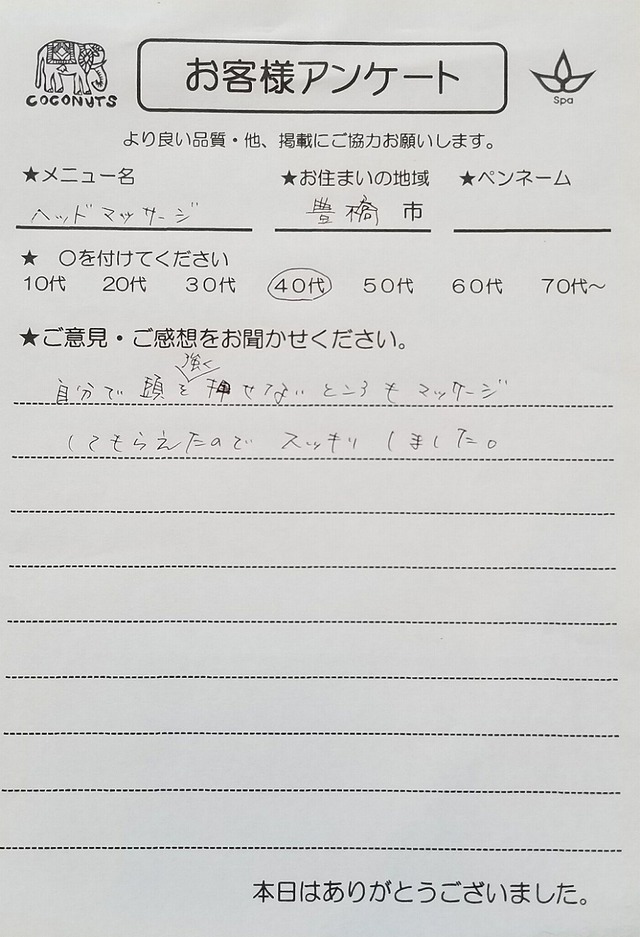 COCONUTS
お客様アンケート
Spa
より良い品質・他、掲載にご協力お願いします。
★メニュー名 ★お住まいの地域 ★ペンネーム
ヘッドマッサージ 豊橋 市
★ 〇を付けてください
10代 20代 30代 40代 50代 60代 70代～
★ご意見・ご感想をお聞かせください。
強く
自分で頭を押せないところもマッサージ
してもらえたのでスッキリしました。
本日はありがとうございました。